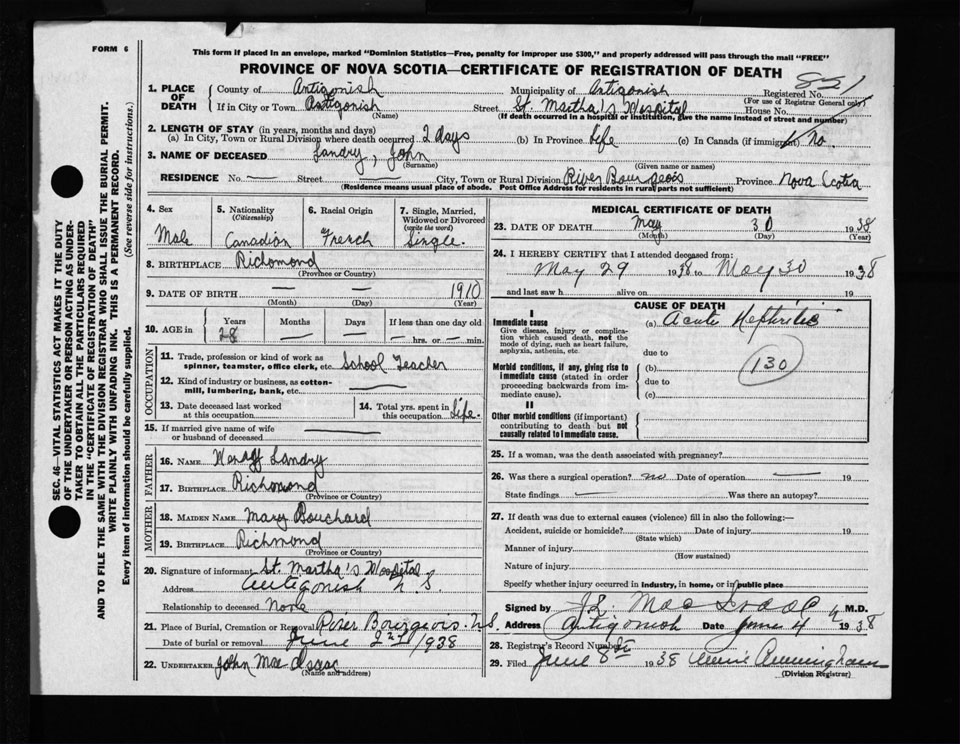 FORM 6
This form if placed in an envelope, marked "Dominion Statistics—Free, penalty for improper use $300," and properly addressed will pass through the mail "FREE"
PROVINCE OF NOVA SCOTIA—CERTIFICATE OF REGISTRATION OF DEATH
SEC. 46—VITAL STATISTICS ACT MAKES IT THE DUTY
OF THE UNDERTAKER OR PERSON ACTING AS UNDER-
TAKER TO OBTAIN ALL THE PARTICULARS REQUIRED
IN THE "CERTIFICATE OF REGISTRATION OF DEATH"
AND TO FILE THE SAME WITH THE DIVISION REGISTRAR WHO SHALL ISSUE THE BURIAL PERMIT.
WRITE PLAINLY WITH UNFADING INK. THIS IS A PERMANENT RECORD.
Every item of information should be carefully supplied. (See reverse side for instructions.)
1. PLACE OF DEATH
County of Antigonish Municipality of Antigonish Registered No. 851
(For use of Registrar General only)
If in City or Town Antigonish Street St. Martha's Hospital House No.
(Name) (If death occurred in a hospital or institution, give the name instead of street and number)
2. LENGTH OF STAY (in years, months and days)
(a) In City, Town or Rural Division where death occurred 2 days (b) In Province Life (c) In Canada (if immigrant) No.
3. NAME OF DECEASED Landry, John
(Surname) (Given name or names)
RESIDENCE No. — Street — City, Town or Rural Division River Bourgeois Province Nova Scotia
(Residence means usual place of abode. Post Office Address for residents in rural parts not sufficient)
4. Sex Male
5. Nationality (Citizenship) Canadian
6. Racial Origin French
7. Single, Married, Widowed or Divorced (write the word) Single.
8. BIRTHPLACE Richmond
(Province or Country)
9. DATE OF BIRTH — — 1910
(Month) (Day) (Year)
10. AGE in Years 28 Months — Days — If less than one day old — hrs. or — min.
OCCUPATION
11. Trade, profession or kind of work as spinner, teamster, office clerk, etc. School Teacher
12. Kind of industry or business, as cotton-mill, lumbering, bank, etc. —
13. Date deceased last worked at this occupation
14. Total yrs. spent in this occupation Life.
15. If married give name of wife or husband of deceased —
FATHER
16. NAME Landry
17. BIRTHPLACE Richmond
(Province or Country)
MOTHER
18. MAIDEN NAME Mary Bouchard
19. BIRTHPLACE Richmond
(Province or Country)
20. Signature of informant St. Martha's Hospital
Address Antigonish N.S.
Relationship to deceased None
21. Place of Burial, Cremation or Removal River Bourgeois. N.S.
Date of burial or removal June 2nd 1938
22. UNDERTAKER John Mac Isaac
(Name and address)
MEDICAL CERTIFICATE OF DEATH
23. DATE OF DEATH May 30 1938
(Month) (Day) (Year)
24. I HEREBY CERTIFY that I attended deceased from:
May 29 1938 to May 30 1938
and last saw h alive on 19
CAUSE OF DEATH
I
Immediate cause
Give disease, injury or complication which caused death, not the mode of dying, such as heart failure, asphyxia, asthenia, etc.
(a) Acute Nephritis
due to
Morbid conditions, if any, giving rise to immediate cause (stated in order proceeding backwards from immediate cause).
(b) 130
due to
(c)
II
Other morbid conditions (if important) contributing to death but not causally related to immediate cause.
25. If a woman, was the death associated with pregnancy?
26. Was there a surgical operation? no Date of operation — 19
State findings — Was there an autopsy?
27. If death was due to external causes (violence) fill in also the following:—
Accident, suicide or homicide? Date of injury 19
(State which)
Manner of injury
(How sustained)
Nature of injury
Specify whether injury occurred in industry, in home, or in public place
Signed by Mac Isaac M.D.
Address Antigonish Date June 4 1938
28. Registrar's Record Number
29. Filed June 8th 1938 Cunningham
(Division Registrar)